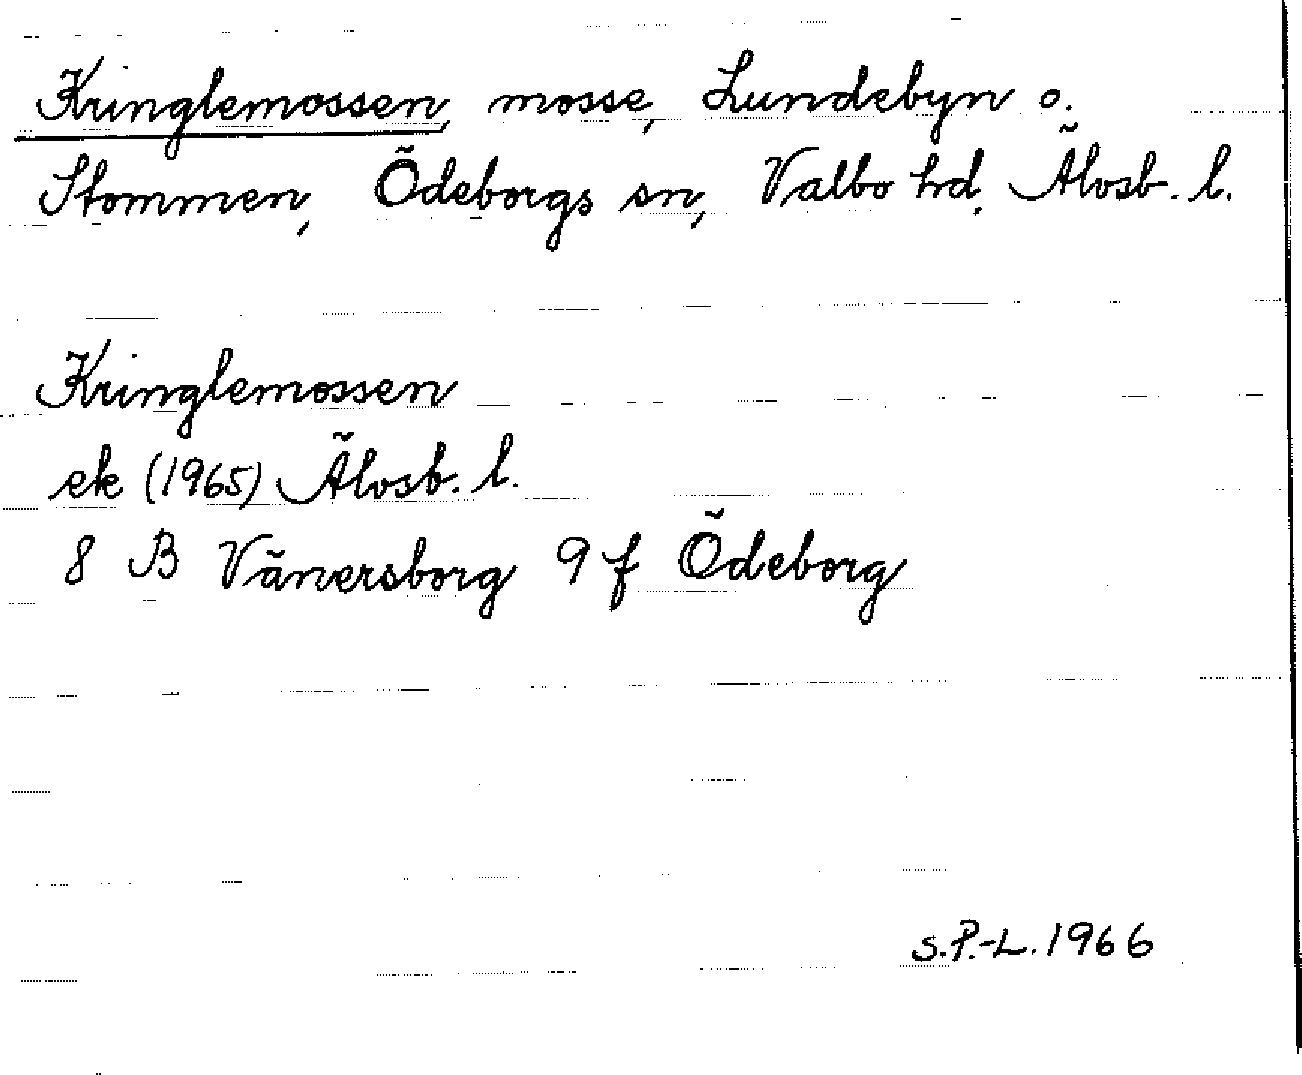 Kringlemossen, mosse, Lundebyn o.
Stommen, Ödeborgs sn, Valbo hd, Älvsb. l.
Kringlemossen
ek (1965) Älvsb. l.
8 B Vänersborg 9 f Ödeborg
S.P.-L. 1966